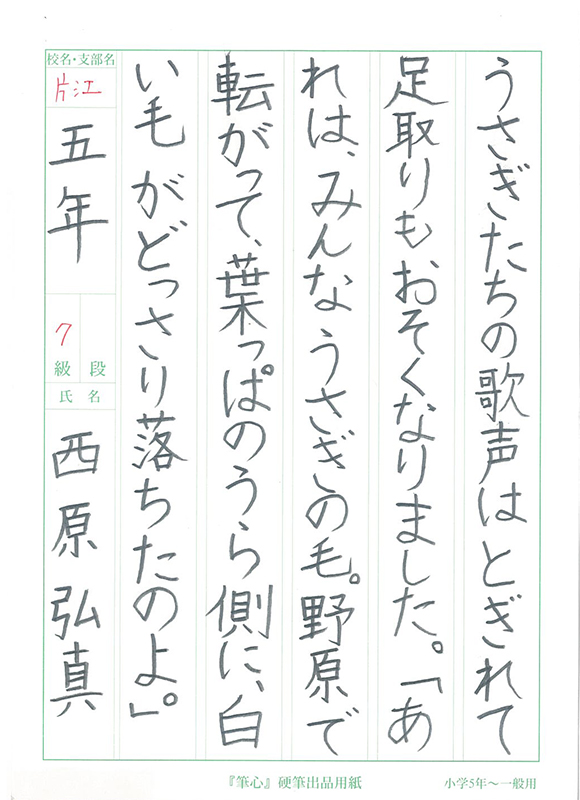 うさぎたちの歌声はとぎれて
足取りもおそくなりました。「あ
れは、みんなうさぎの毛。野原で
転がって、葉っぱのうら側に、白
い毛がどっさり落ちたのよ。」
校名・支部名
片江
五年
7
級 段
氏 名
西原弘真
『筆心』硬筆出品用紙
小学5年〜一般用